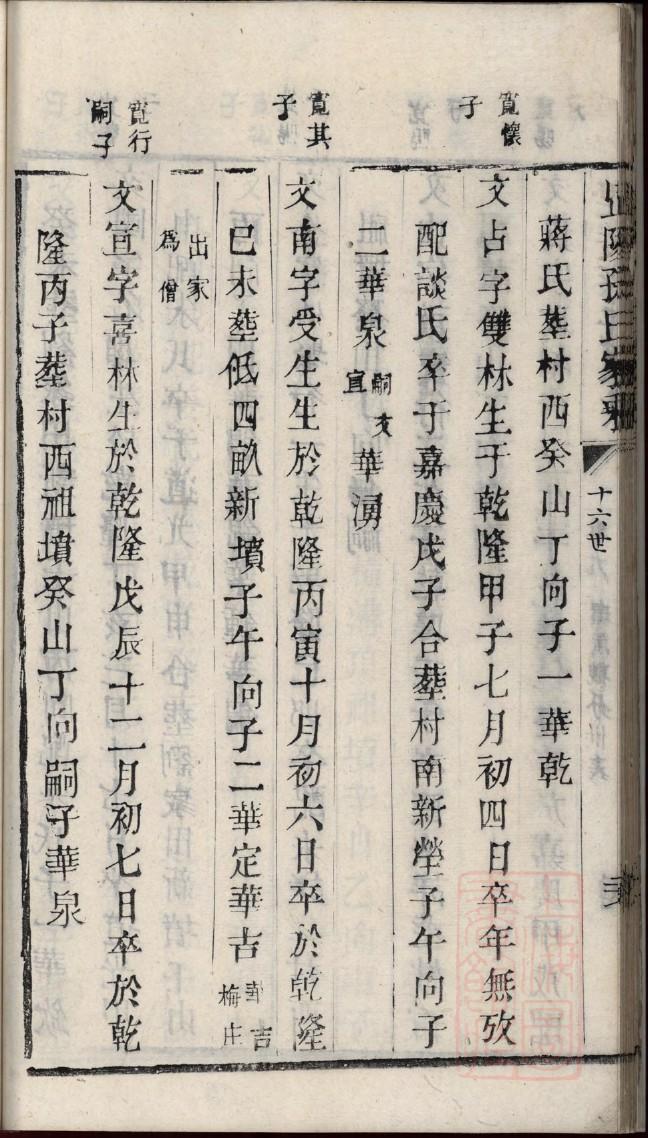 孫氏家乘
十六世
蔣氏塟村西癸山丁向子一華乾
寬懷子
文占字雙林生于乾隆甲子七月初四日卒年無攷
配談氏卒于嘉慶戊子合塟村南新塋子午向子
二華泉嗣文宣華湧
寬其子
文南字受生生於乾隆丙寅十月初六日卒於乾隆
巳未塟低四畝新墳子午向子二華定華吉華吉梅庄
出家為僧
寬行嗣子
文宣字喜林生於乾隆戊辰十二月初七日卒於乾
隆丙子塟村西祖墳癸山丁向嗣子華泉